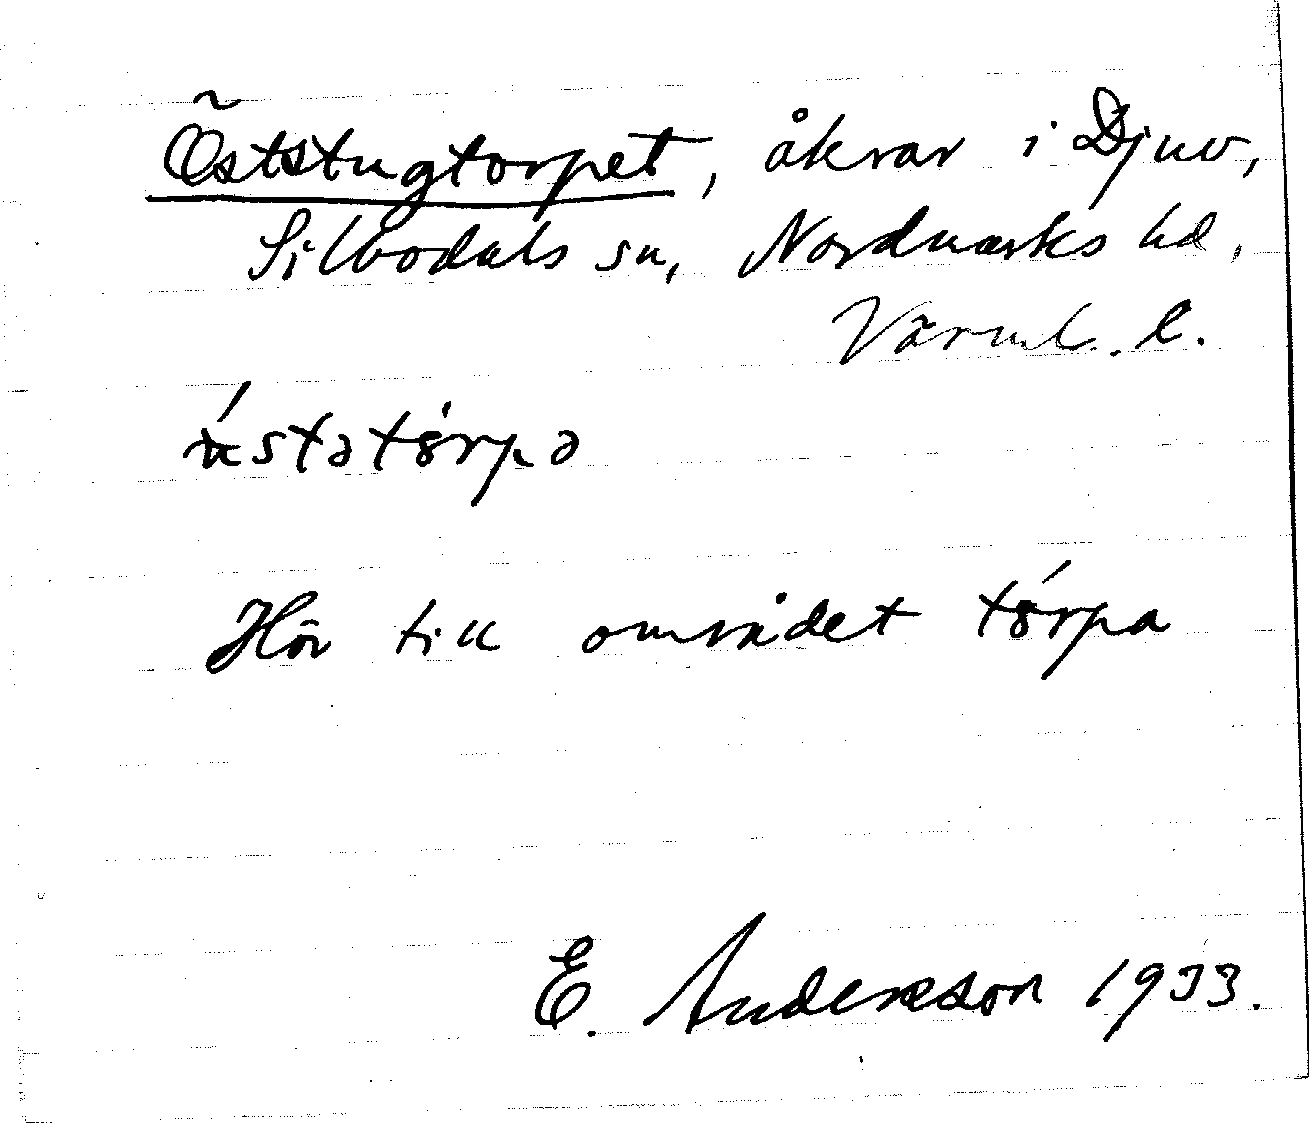 Öststugtorpet, åkrar i Djuv,
Silbodals sn, Nordmarks hd,
Värml. l.
ústətö̀rpə
Hör till området tö́rpa
E. Andersson 1933.